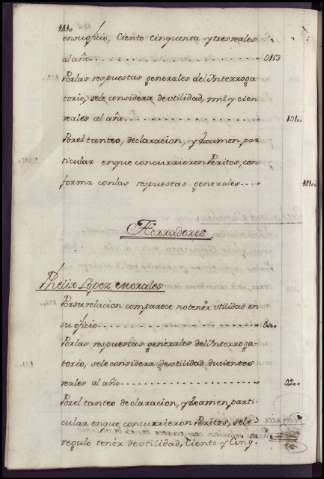 en su oficio, Ciento cinquenta y tres reales
al año . . . 0153
Por las respuestas generales del Interroga-
torio, se le considera de utilidad, mil y cien
reales al año . . .
Por el tanteo, declaracion, y Examen, par-
ticular en que concurrieron Peritos, con-
forma con las respuestas generales . . .
Herradores
Phelix Lopez Morales
Por su relacion comparece no tener utilidad en
su oficio . . .
Por las respuestas generales del Interroga-
torio, se le considera de utilidad ducientos
reales al año . . .
Por el tanteo declaracion, y Examen parti-
cular en que concurrieron Peritos, se le
regulo tener de utilidad, Ciento y Cinq-